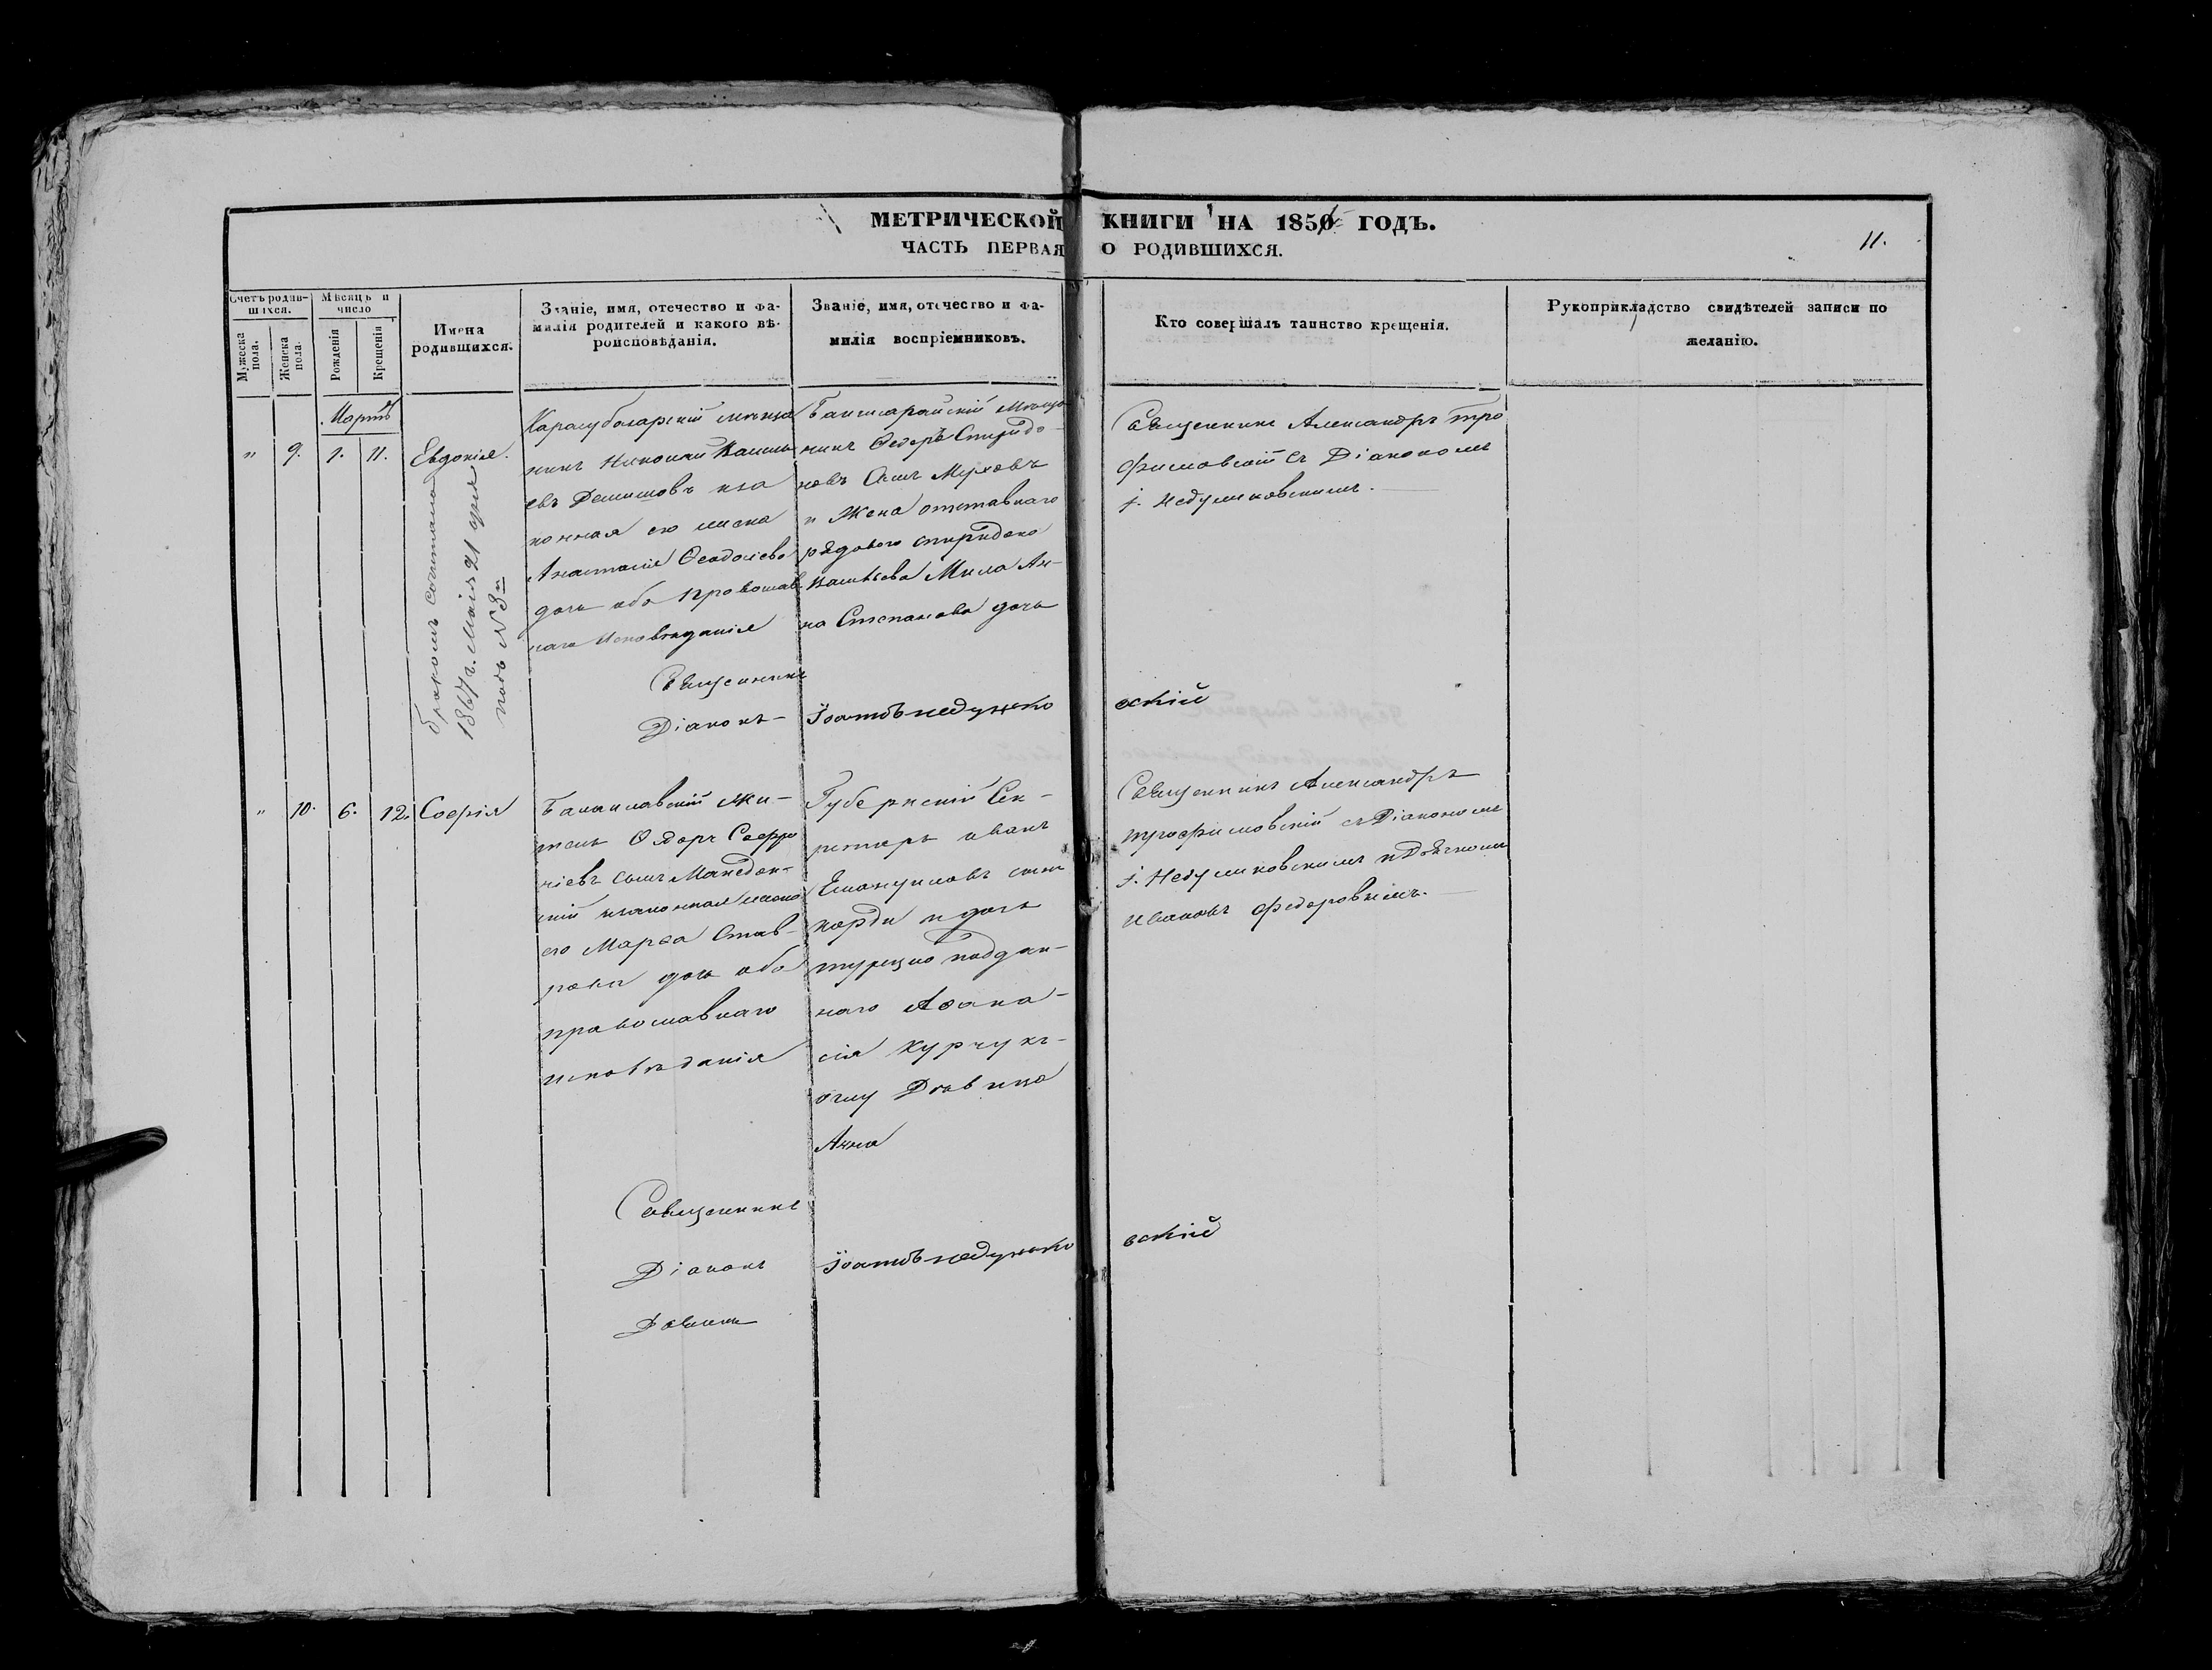 МЕТРИЧЕСКОЙ КНИГИ НА 185 ГОДЪ.
ЧАСТЬ ПЕРВАЯ О РОДИВШИХСЯ.
11.
Счетъ родив-
шихся.
Мужеска
пола.
Женска
пола.
Мѣсяцъ и
число
Рожденія
Крещенія
Имена
родившихся.
Званіе, имя, отечество и фа-
милія родителей и какого вѣ-
роисповѣданія.
Званіе, имя, отечество и фа-
милія воспріемниковъ.
Кто совершалъ таинство крещенія.
Рукоприкладство свидѣтелей записи по
желанію.
Мартъ
" 9. 1. 11. Евдокія.
бракомъ сочитана
1867г. Маія 21 дня
подъ № 3м
Карасубазарскій мѣща
нинъ Николай
евъ за
конная его жена
Анастасія Ѳеодосіева
дочь оба православ
наго исповѣданія
Бахчисарайскій мѣща
нинъ Ѳедоръ Спиридо-
новъ сынъ
и Жена отставнаго
рядового
Ан-
на Степанова дочь
Священникъ Александръ Тро
фимовскій съ Діакономъ
і. Недзужковскимъ.
Священникъ
Діаконъ- Іоаннъ Недзужко вскій
" 10. 6. 12. Софія
Балаклавскій жи-
тель Ѳедоръ Софро
ніевъ сынъ Македон-
скій и законная жена
его Марѳа Став-
рова дочь оба
православнаго
исповѣданія
Губернскій Сек-
ретарь иванъ
Емануиловъ сынъ
и дочь
турецко поддан-
наго Аѳана-
сія Курчукъ-
оглу Дѣвица
Анна
Священникъ Александръ
трофимовскій съ Діакономъ
і. Недзужковскимъ и Дьячкомъ
иваномъ Федоровымъ.
Священникъ
Діаконъ Іоаннъ Недзужко вскій
Дьячокъ